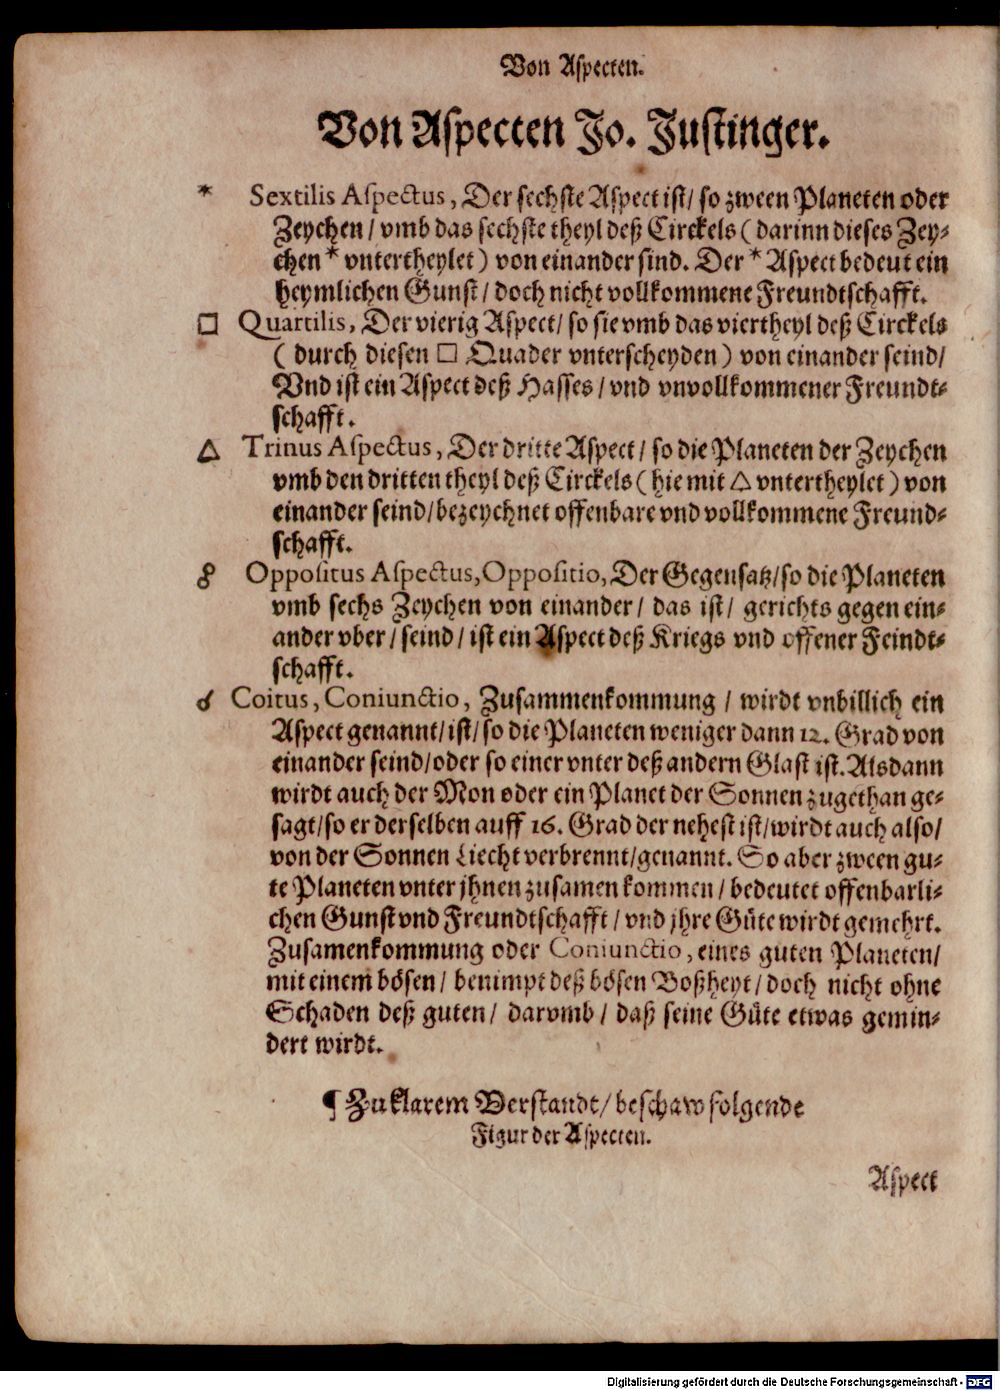 Von Aspecten.
Von Aspecten Jo. Justinger.
* Sextilis Aspectus, Der sechste Aspect ist/ so zween Planeten oder
Zeychen/ vmb das sechste theyl deß Circkels (darinn dieses Zey-
chen * vntertheylet) von einander sind. Der * Aspect bedeut ein
heymlichen Gunst/ doch nicht vollkommene Freundtschafft.
□ Quartilis, Der vierig Aspect/ so sie vmb das viertheyl deß Circkels
(durch diesen □ Quader vnterscheyden) von einander seind/
Vnd ist ein Aspect deß Hasses/ vnd vnvollkommener Freundt-
schafft.
△ Trinus Aspectus, Der dritte Aspect/ so die Planeten der Zeychen
vmb den dritten theyl deß Circkels (hie mit △ vntertheylet) von
einander seind/ bezeychnet offenbare vnd vollkommene Freund-
schafft.
☍ Oppositus Aspectus, Oppositio, Der Gegensatz/ so die Planeten
vmb sechs Zeychen von einander/ das ist/ gerichts gegen ein-
ander vber/ seind/ ist ein Aspect deß Kriegs vnd offener Feindt-
schafft.
☌ Coitus, Coniunctio, Zusammenkommung/ wirdt vnbillich ein
Aspect genannt/ ist/ so die Planeten weniger dann 12. Grad von
einander seind/ oder so einer vnter deß andern Glast ist. Alsdann
wirdt auch der Mon oder ein Planet der Sonnen zugethan ge-
sagt/ so er derselben auff 16. Grad der nehest ist/ wirdt auch also/
von der Sonnen Liecht verbrennt/ genannt. So aber zween gu-
te Planeten vnter jhnen zusamen kommen/ bedeutet offenbarli-
chen Gunst vnd Freundtschafft/ vnd jhre Güte wirdt gemehrt.
Zusamenkommung oder Coniunctio, eines guten Planeten/
mit einem bösen/ benimpt deß bösen Boßheyt/ doch nicht ohne
Schaden deß guten/ darvmb/ daß seine Güte etwas gemin-
dert wirdt.
¶ Zu klarem Verstandt/ beschaw folgende
Figur der Aspecten.
Aspect
Digitalisierung gefördert durch die Deutsche Forschungsgemeinschaft - DFG